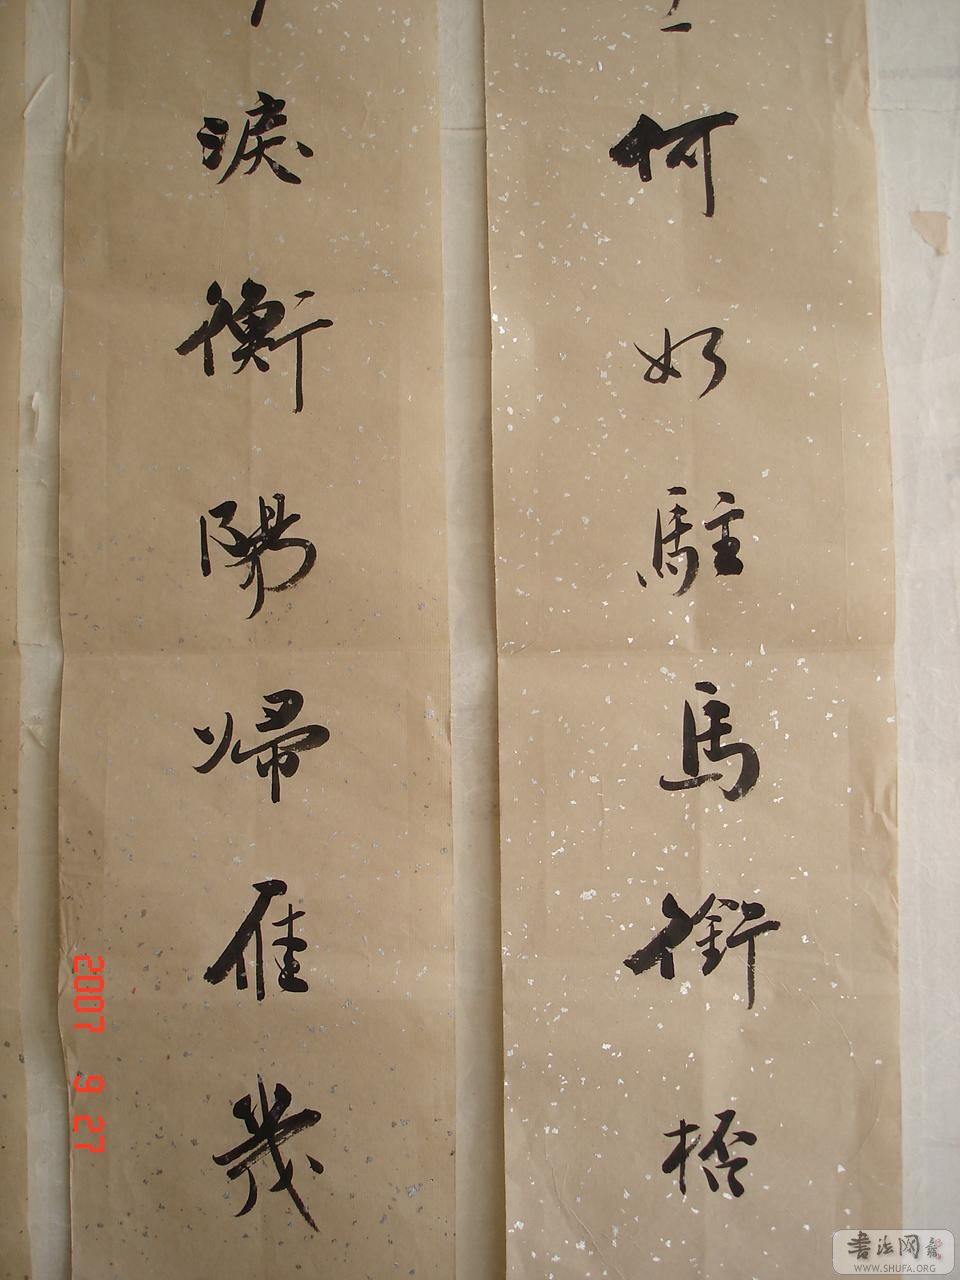 何如駐馬銜桮
淚衡陽帰雁幾
2007 9 27
書法网
WWW.SHUFA.ORG